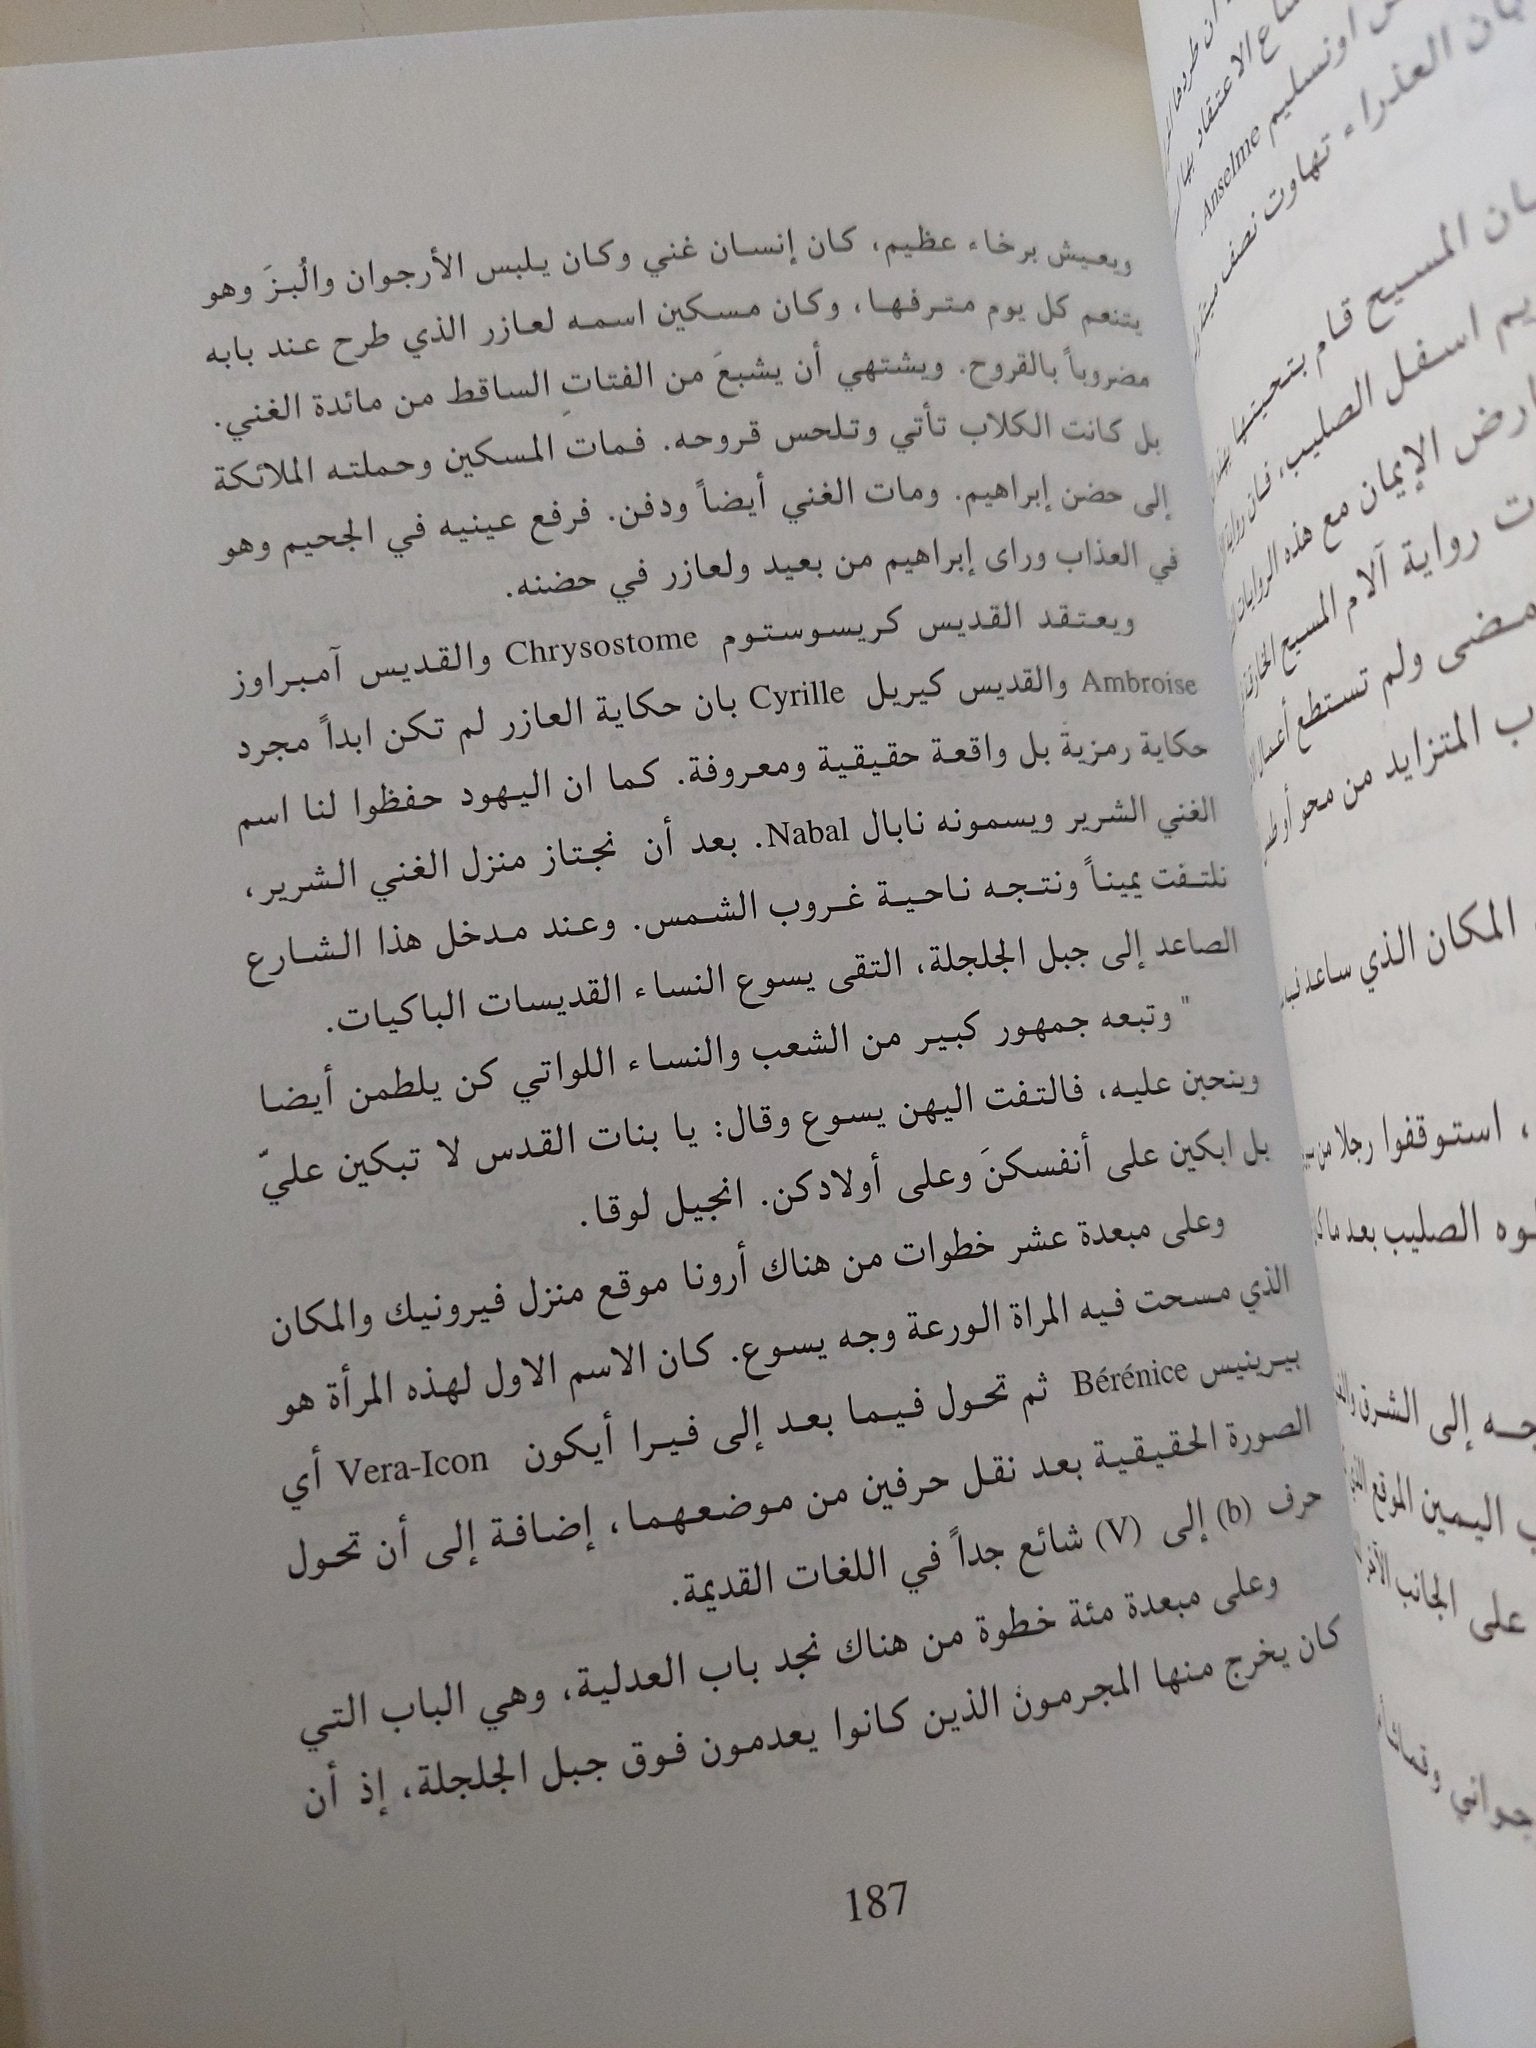 ويعيش برخاء عظيم، كان إنسان غني وكان يلبس الأرجوان والُبزَ وهو
يتنعم كل يوم مترفها، وكان مسكين اسمه لعازر الذي طرح عند بابه
مضروباً بالقروح. ويشتهي أن يشبعَ من الفتاتِ الساقط من مائدة الغني.
بل كانت الكلاب تأتي وتلحس قروحه. فمات المسكين وحملته الملائكة
إلى حضن إبراهيم. ومات الغني أيضاً ودفن. فرفع عينيه في الجحيم وهو
في العذاب وراى إبراهيم من بعيد ولعازر في حضنه.
ويعتقد القديس كريسوستوم Chrysostome والقديس آمبراوز
Ambroise والقديس كيريل Cyrille بان حكاية العازر لم تكن ابداً مجرد
حكاية رمزية بل واقعة حقيقية ومعروفة. كما ان اليهود حفظوا لنا اسم
الغني الشرير ويسمونه نابال Nabal. بعد أن نجتاز منزل الغني الشرير،
نلتفت يميناً ونتجه ناحية غروب الشمس. وعند مدخل هذا الشارع
الصاعد إلى جبل الجلجلة، التقى يسوع النساء القديسات الباكيات.
" وتبعه جمهور كبير من الشعب والنساء اللواتي كن يلطمن أيضا
وينحبن عليه، فالتفت اليهن يسوع وقال: يا بنات القدس لا تبكين عليّ
بل ابكين على أنفسكنَ وعلى أولادكن. انجيل لوقا.
وعلى مبعدة عشر خطوات من هناك أرونا موقع منزل فيرونيك والمكان
الذي مسحت فيه المراة الورعة وجه يسوع. كان الاسم الاول لهذه المرأة هو
بيرينيس Bérénice ثم تحول فيما بعد إلى فيرا أيكون Vera-Icon أي
الصورة الحقيقية بعد نقل حرفين من موضعهما، إضافة إلى أن تحول
حرف (b) إلى (V) شائع جداً في اللغات القديمة.
وعلى مبعدة مئة خطوة من هناك نجد باب العدلية، وهي الباب التي
كان يخرج منها المجرمون الذين كانوا يعدمون فوق جبل الجلجلة، إذ أن
187
Anselme.
العذراء تهاوت نصف
المسيح قام بتحيتها
اسفل الصليب، فان
الإيمان مع هذه الروايات
رواية آلام المسيح
مضى ولم تستطع
المتزايد من محو
المكان الذي ساعد
، استوقفوا رجلا من
الصليب بعد ما
إلى الشرق
اليمين الموقع
على الجانب